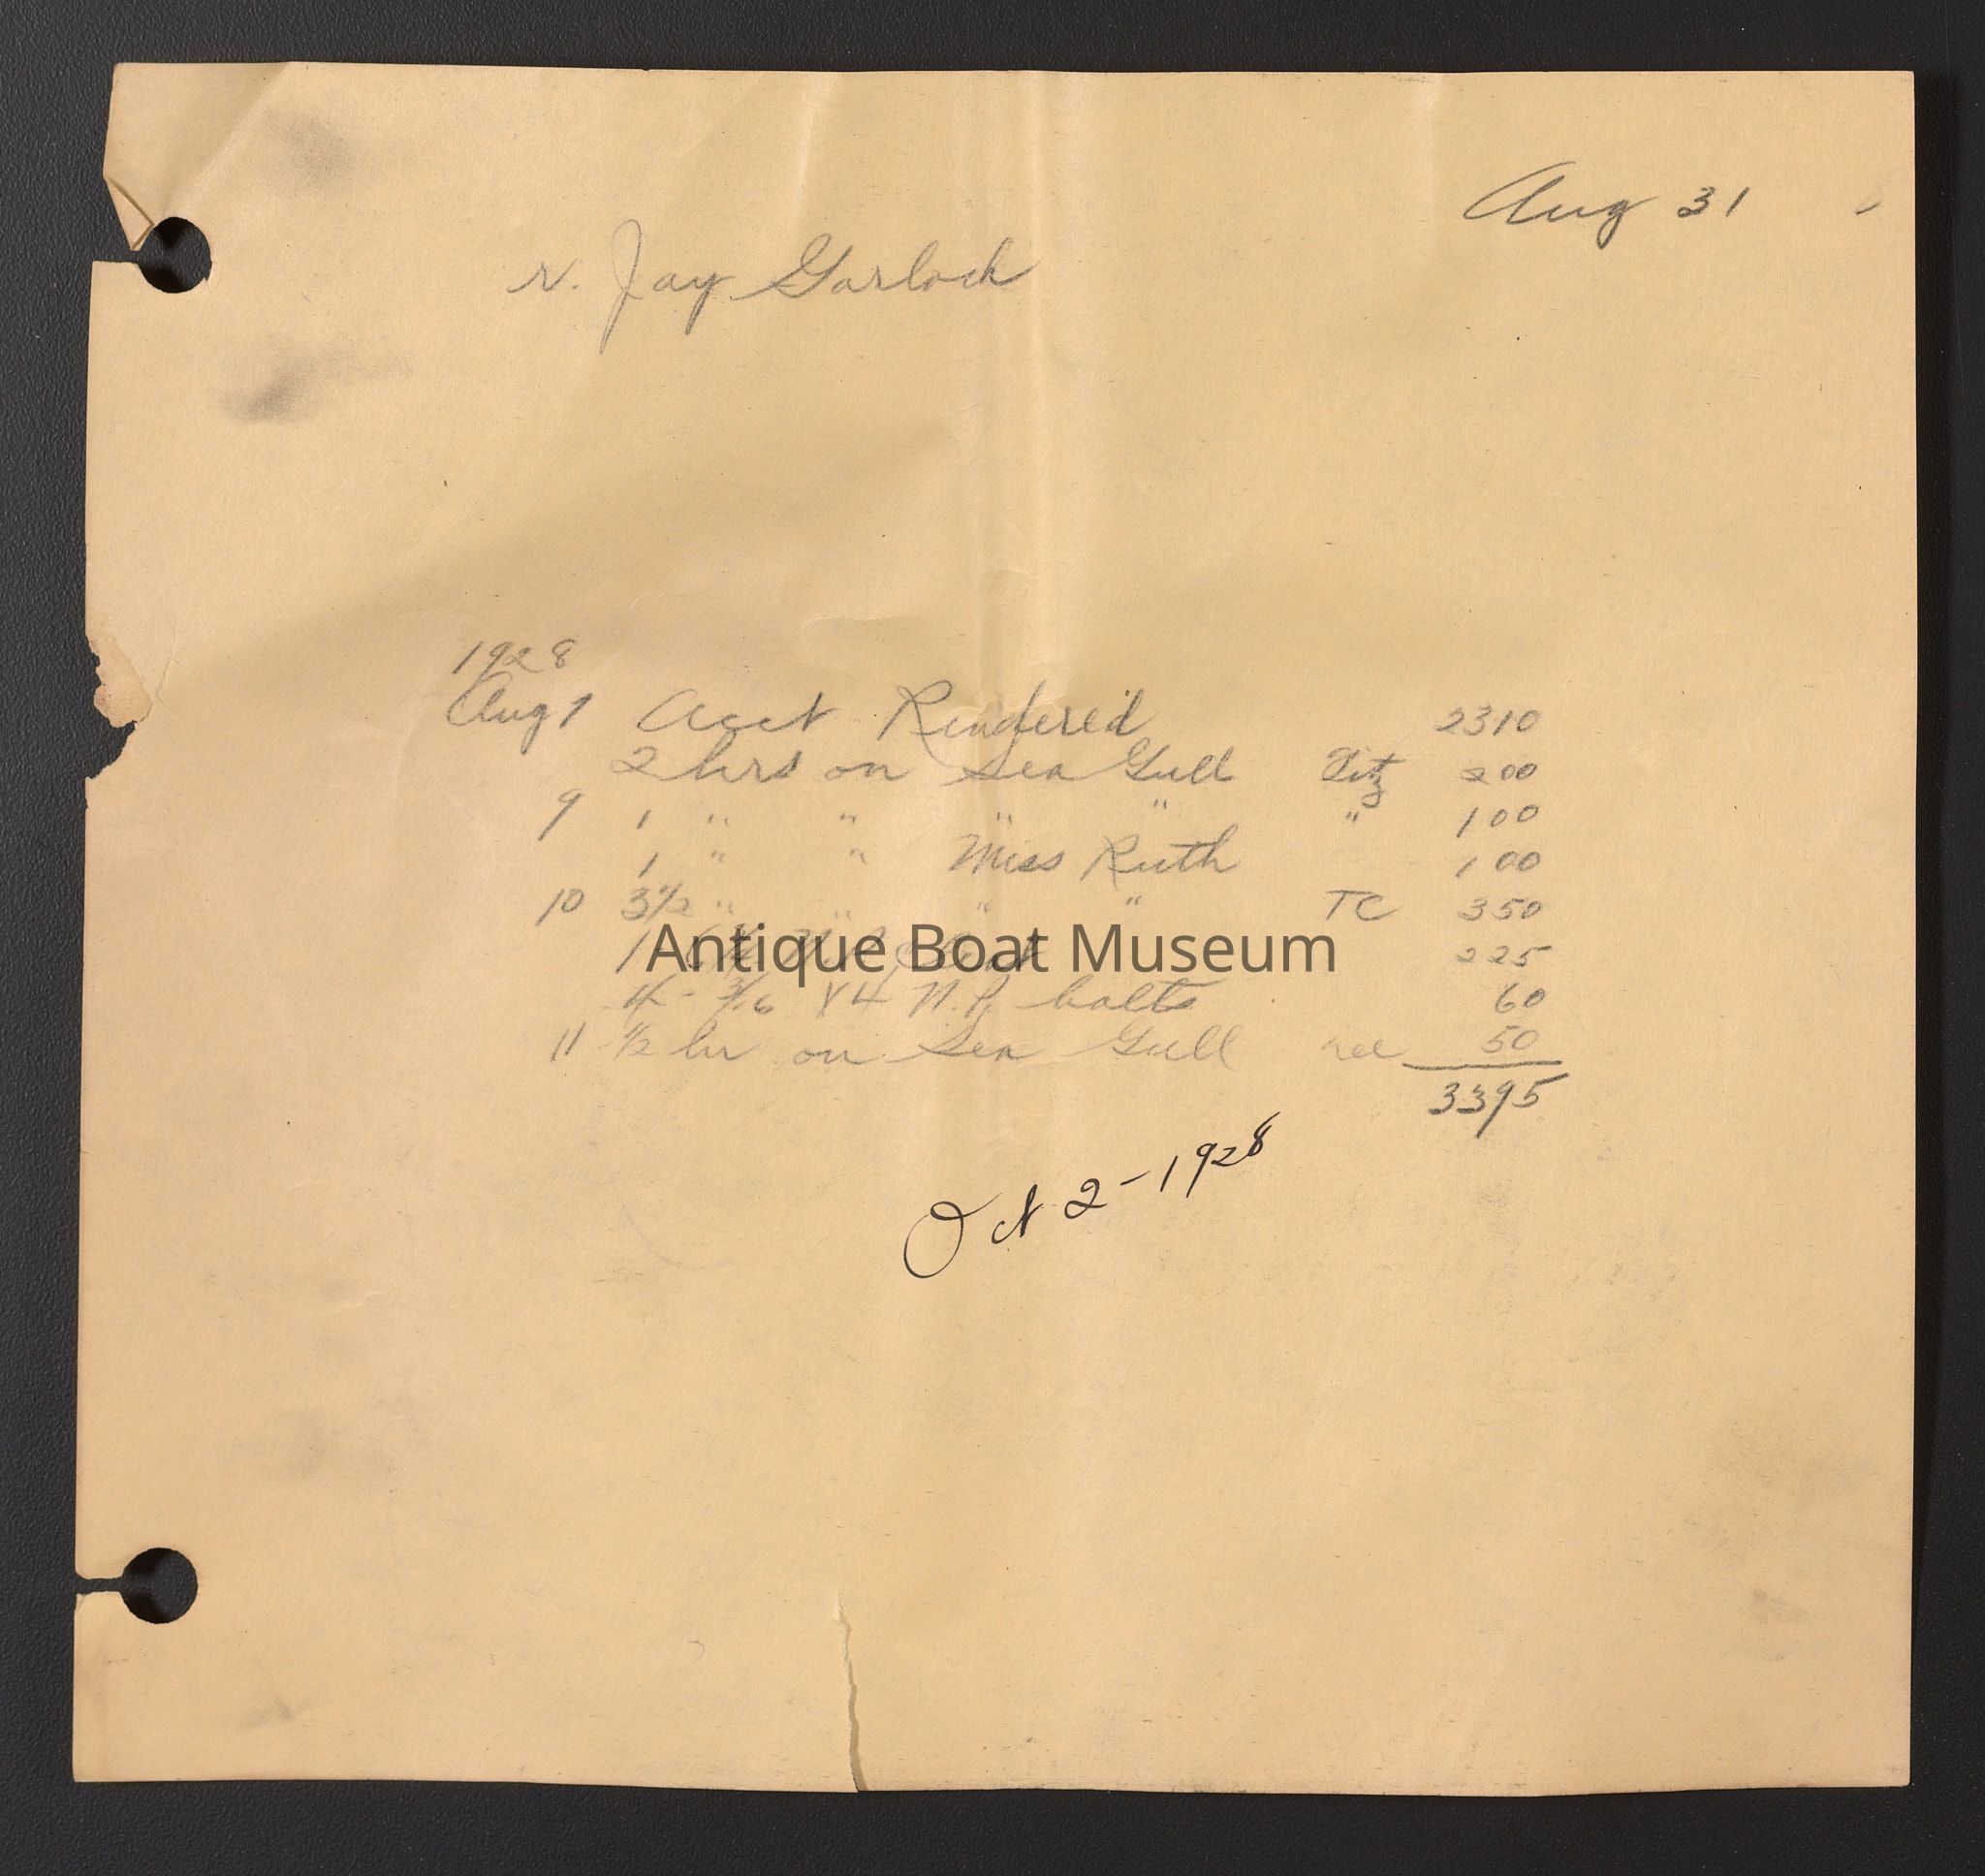 Aug 31 -
N. Jay Garlock
1928
Aug 1 Acct Rendered 2310
2 hrs on Sea Gull Fitz 200
9 1 " " " " " 100
1 " " Miss Ruth 100
10 3 1/2 " " " " TC 350
1 225
Antique Boat Museum
4 - 3/16 x 4 N.P. bolts 60
11 1/2 hr on Sea Gull 50
3395
Oct 2 - 1928